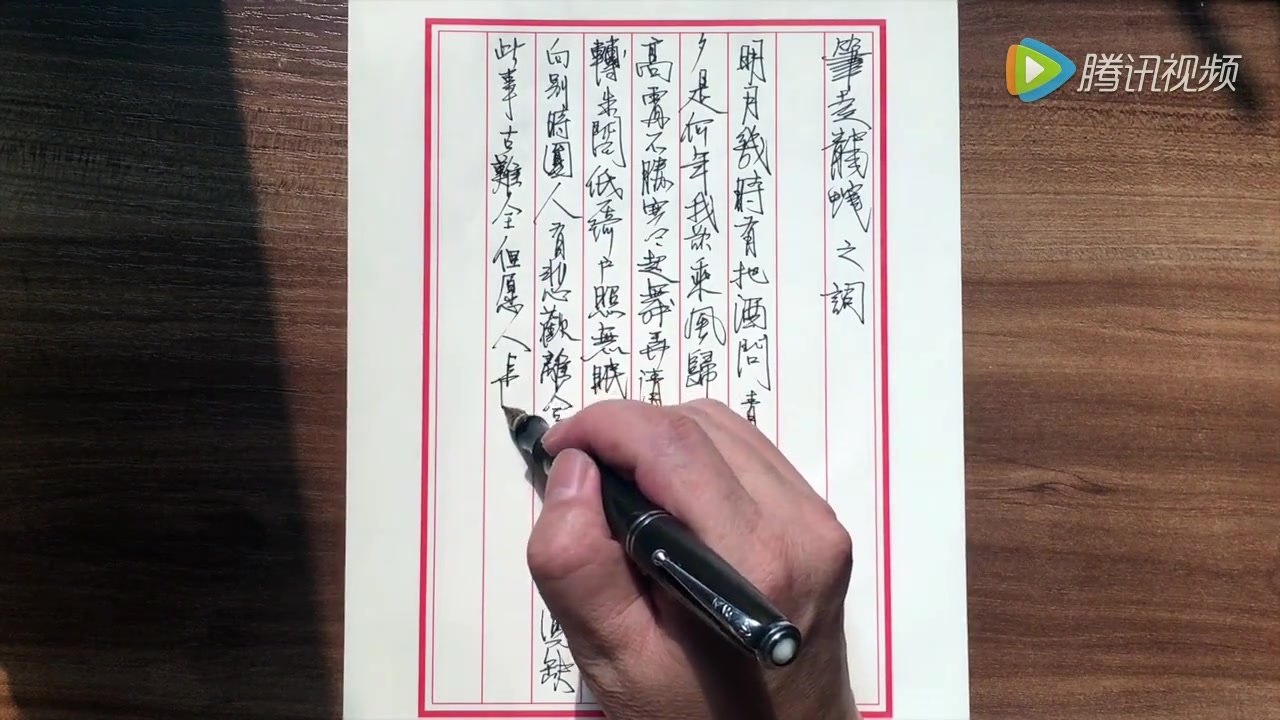 筆走龍蛇之詞
明月幾時有把酒問青
夕是何年我欲乘風歸
高處不勝寒々起舞弄清
轉朱閣低綺户照無眠
向别時圓人有悲歡離合
缺
此事古難全但愿人长
腾讯视频